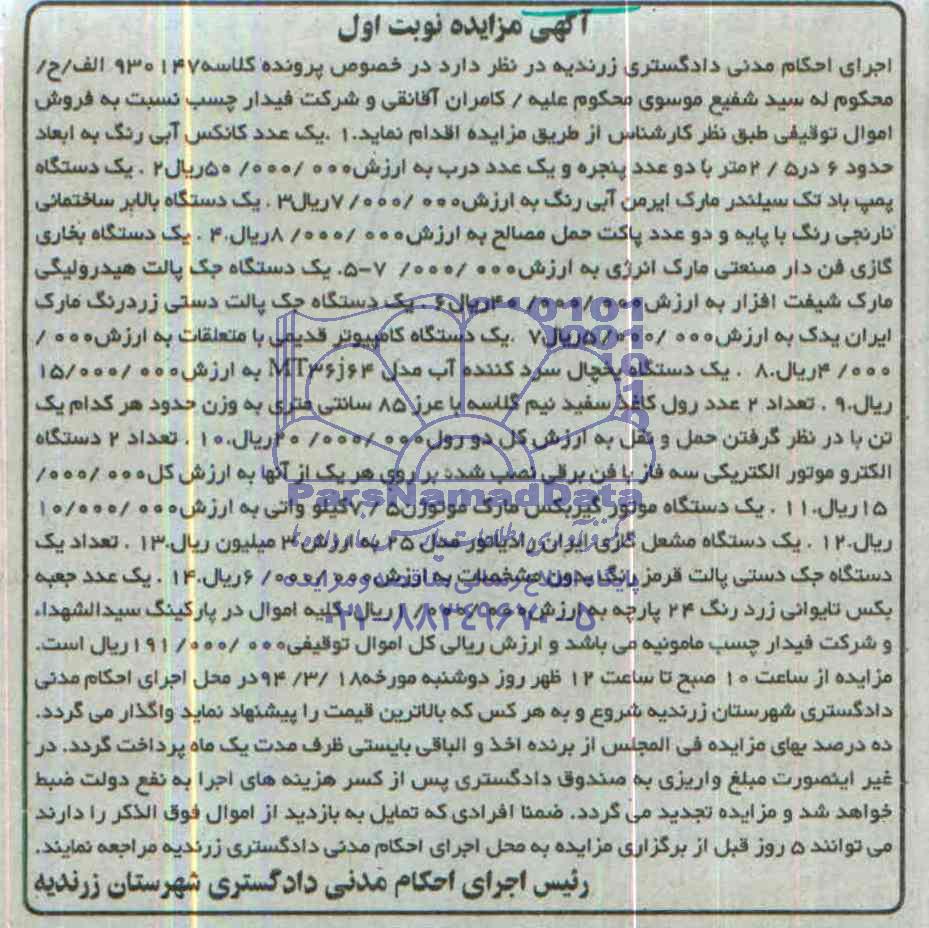 آگهی مزایده نوبت اول
اجرای احکام مدنی دادگستری زرندیه در نظر دارد در خصوص پرونده کلاسه۹۳۰۱۴۷ الف/ح/
محکوم له سید شفیع موسوی محکوم علیه / کامران آقائقی و شرکت فیدار چسب نسبت به فروش
اموال توقیفی طبق نظر کارشناس از طریق مزایده اقدام نماید.۱ .یک عدد کانکس آبی رنگ به ابعاد
حدود ۶ در۵ / ۲متر با دو عدد پنجره و یک عدد درب به ارزش۰۰۰ /۰۰۰/ ۵۰ریال۲ . یک دستگاه
پمپ باد تک سیلندر مارک ایرمن آبی رنگ به ارزش۰۰۰ /۰۰۰/ ۷ریال۳ . یک دستگاه بالابر ساختمانی
نارنجی رنگ با پایه و دو عدد پاکت حمل مصالح به ارزش۰۰۰ /۰۰۰/ ۸ریال.۴ . یک دستگاه بخاری
گازی فن دار صنعتی مارک انرژی به ارزش۰۰۰ /۰۰۰/ ۷-۵. یک دستگاه جک پالت هیدرولیکی
مارک شیفت افزار به ارزش۰۰۰ /۰۰۰/ ۴۰ریال۶ . یک دستگاه جک پالت دستی زردرنگ مارک
ایران یدک به ارزش۰۰۰ /۰۰۰/ ۵ریال۷ .یک دستگاه کامپیوتر قدیمی با متعلقات به ارزش۰۰۰ /
۰۰۰/ ۴ریال.۸ . یک دستگاه یخچال سرد کننده آب مدل MT۳۶j۶۴ به ارزش۰۰۰ /۰۰۰/ ۱۵
ریال.۹ . تعداد ۲ عدد رول کاغذ سفید نیم گلاسه با عرز ۸۵ سانتی متری به وزن حدود هر کدام یک
تن با در نظر گرفتن حمل و نقل به ارزش کل دو رول۰۰۰ /۰۰۰/ ۲۰ریال.۱۰ . تعداد ۲ دستگاه
الکترو موتور الکتریکی سه فاز با فن برقی نصب شده بر روی هر یک از آنها به ارزش کل۰۰۰ /۰۰۰/
۱۵ریال.۱۱ . یک دستگاه موتور گیربکس مارک موتوژن۵ /۷کیلو واتی به ارزش۰۰۰ /۰۰۰/ ۱۰
ریال.۱۲ . یک دستگاه مشعل گازی ایران رادیاتور مدل ۲۵ به ارزش ۳ میلیون ریال.۱۳ . تعداد یک
دستگاه جک دستی پالت قرمز رنگ بدون مشخصات به ارزش۰۰۰ /۰۰۰/ ۶ریال.۱۴ . یک عدد جعبه
بکس تایوانی زرد رنگ ۲۴ پارچه به ارزش۰۰۰ /۰۰۰/ ۱ریال. کلیه اموال در پارکینگ سیدالشهداء
و شرکت فیدار چسب مامونیه می باشد و ارزش ریالی کل اموال توقیفی۰۰۰ /۰۰۰/ ۱۹۱ریال است.
مزایده از ساعت ۱۰ صبح تا ساعت ۱۲ ظهر روز دوشنبه مورخه۱۸ /۳/ ۹۴در محل اجرای احکام مدنی
دادگستری شهرستان زرندیه شروع و به هر کس که بالاترین قیمت را پیشنهاد نماید واگذار می گردد.
ده درصد بهای مزایده فی المجلس از برنده اخذ و الباقی بایستی ظرف مدت یک ماه پرداخت گردد. در
غیر اینصورت مبلغ واریزی به صندوق دادگستری پس از کسر هزینه های اجرا به نفع دولت ضبط
خواهد شد و مزایده تجدید می گردد. ضمنا افرادی که تمایل به بازدید از اموال فوق الذکر را دارند
می توانند ۵ روز قبل از برگزاری مزایده به محل اجرای احکام مدنی دادگستری زرندیه مراجعه نمایند.
رئیس اجرای احکام مدنی دادگستری شهرستان زرندیه
ParsNamadData
۰۲۱-۸۸۳۴۹۶۷۰-۵